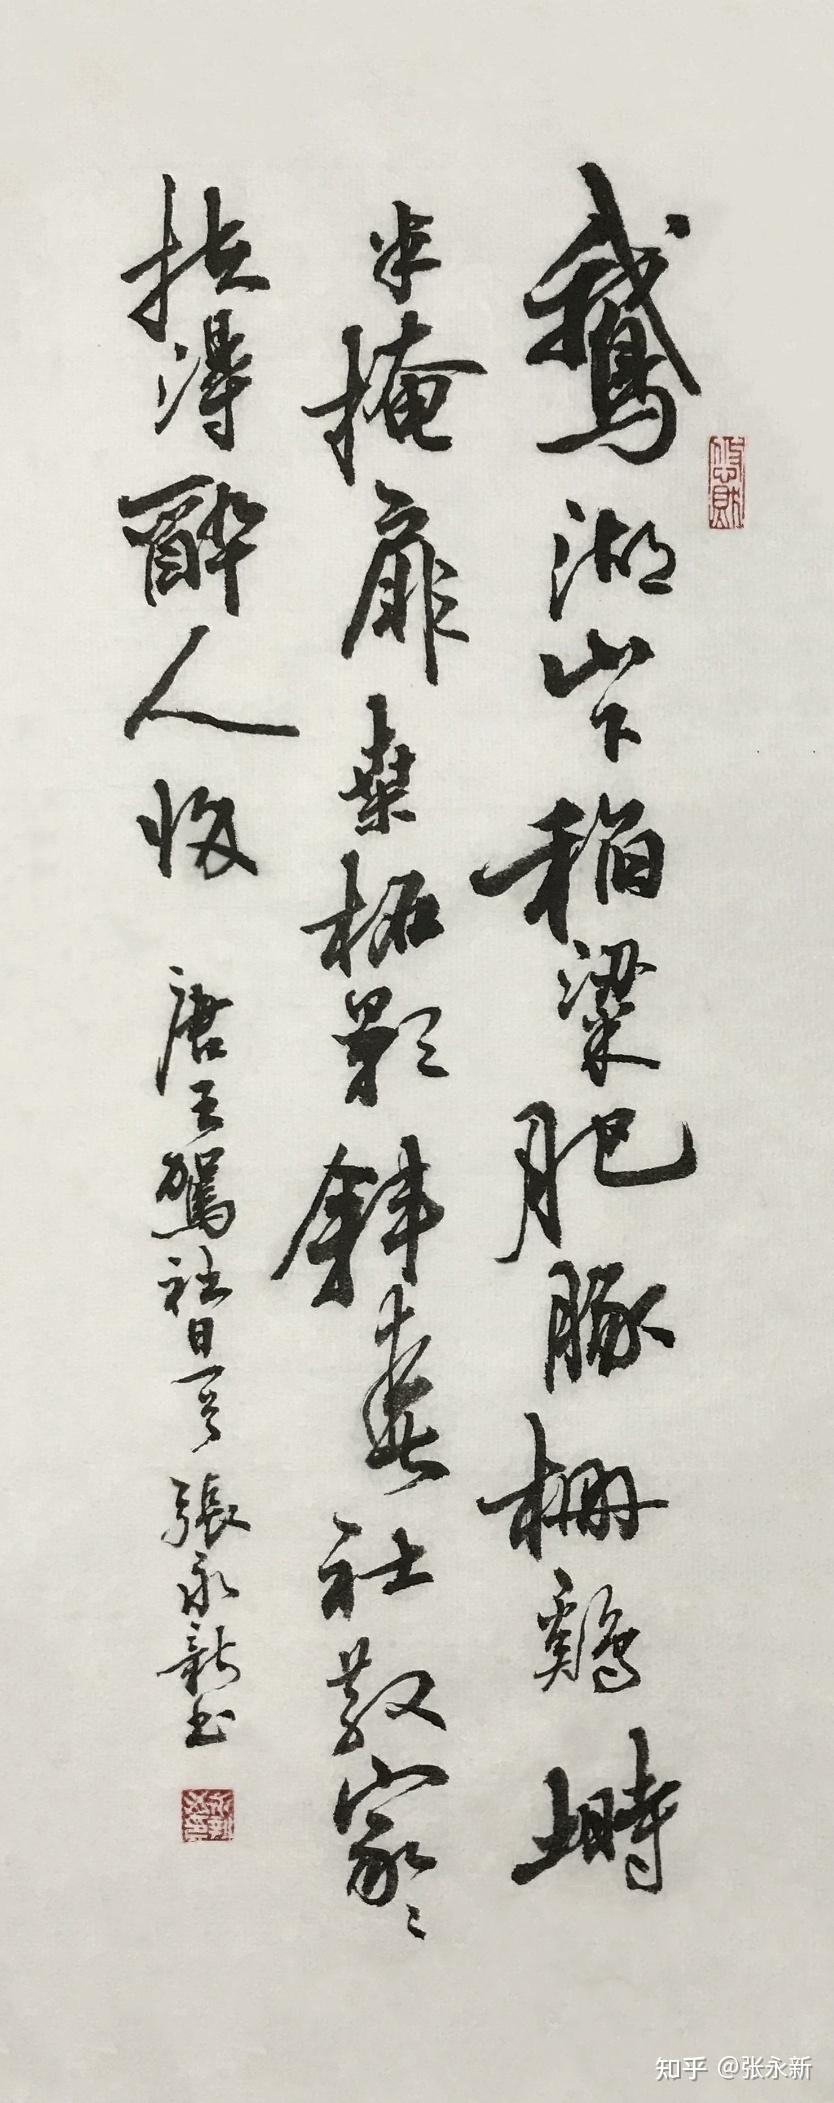 鵝湖山下稻粱肥豚栅鷄塒
半掩扉桑柘影斜春社散家〻
扶得醉人归 唐王駕社日一首 張永新书
知乎 @张永新